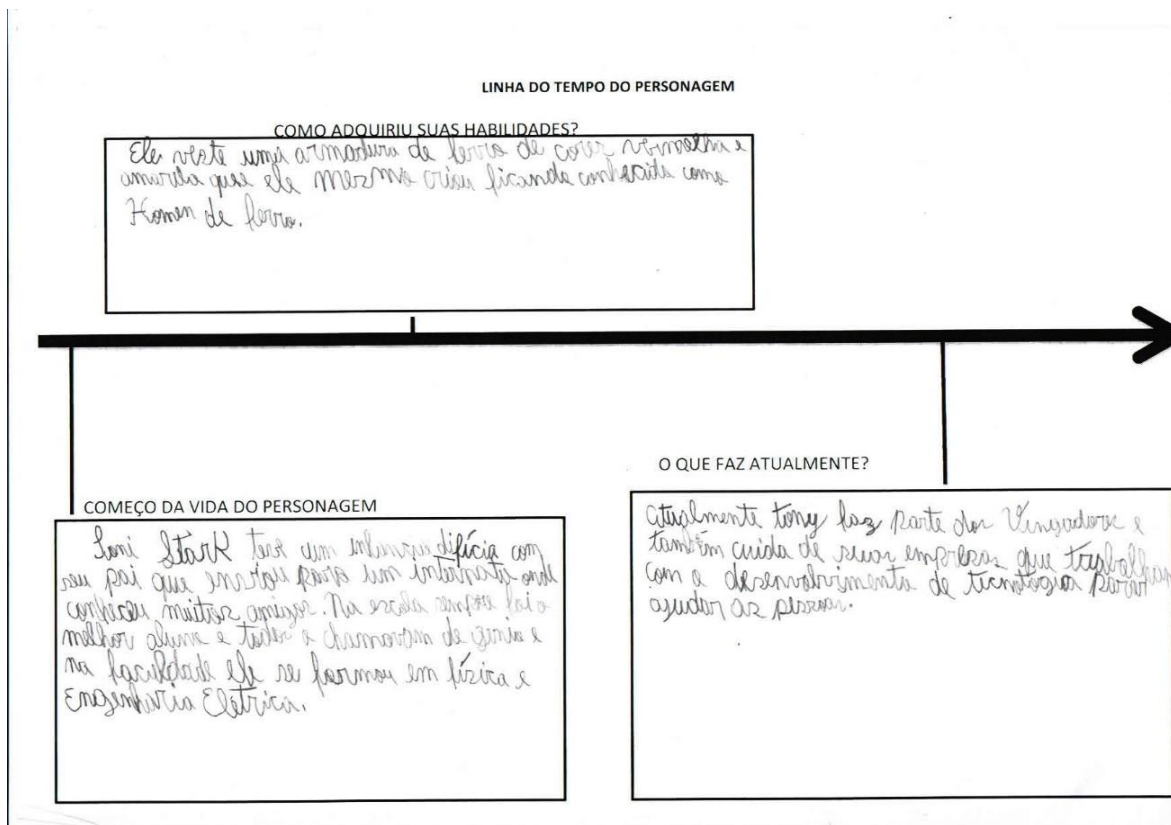 LINHA DO TEMPO DO PERSONAGEM
COMO ADQUIRIU SUAS HABILIDADES?
Ele veste uma armadura de ferro de cores vermelha e
amarela que ele mesmo criou ficando conhecido como
Homen de ferro.
COMEÇO DA VIDA DO PERSONAGEM
Toni Stark teve um difícia com
seu pai que enviou para um internato onde
conheceu muitos amigos. Na escola sempre foi o
melhor aluno e todos o chamavam de gênio e
na faculdade ele se formou em física e
Engenharia Elétrica.
O QUE FAZ ATUALMENTE?
Atualmente tony faz parte dos Vingadores e
também cuida de suas empresas que trabalham
com o desenvolvimento de tecnologia para
ajudar as pessoas.